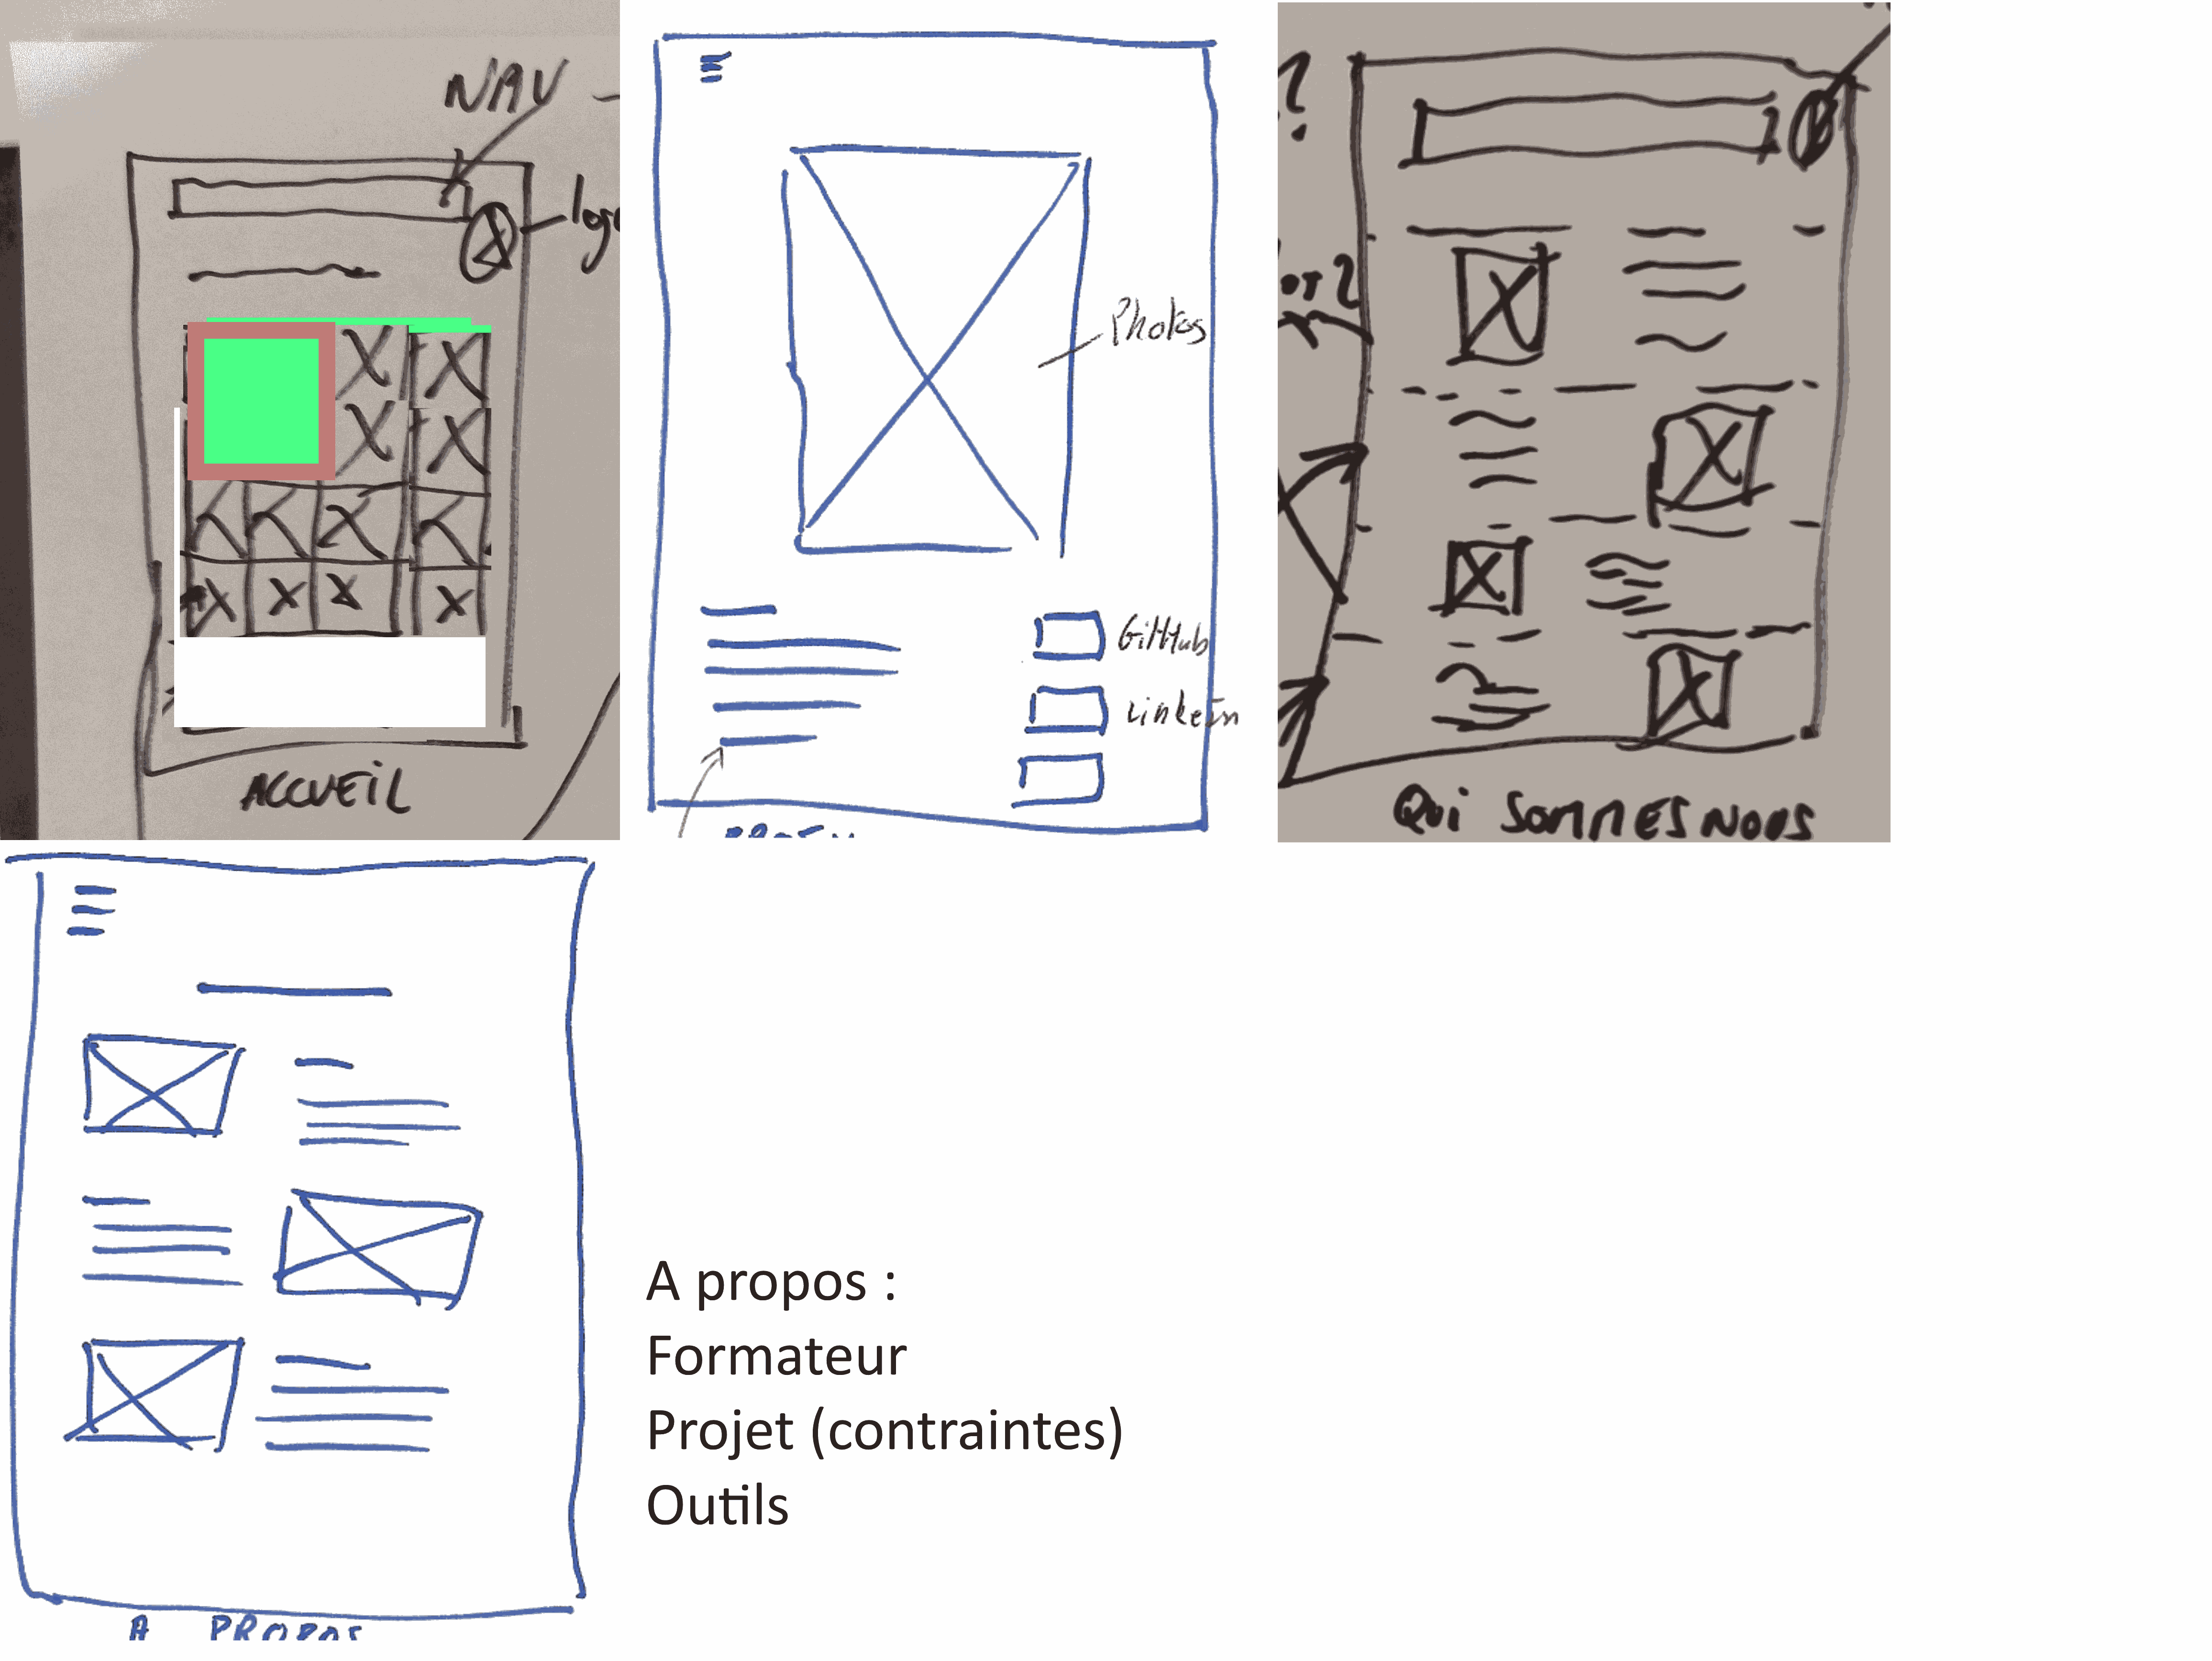 NAV
ACCUEIL
Photos
GitHub
LinkeIn
?
QUi SOMMES NOUS
A PROPOS
A propos :
Formateur
Projet (contraintes)
Outils